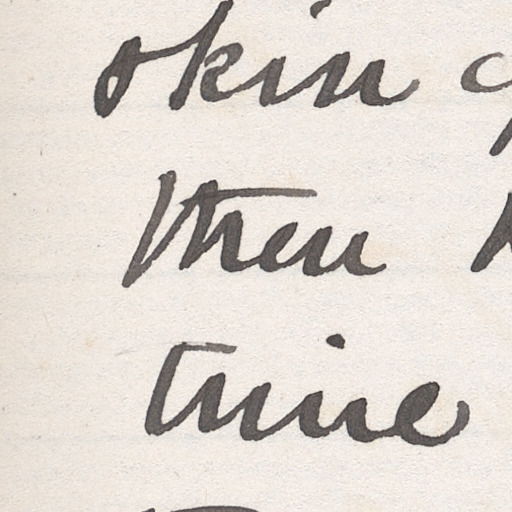 skin
then
time